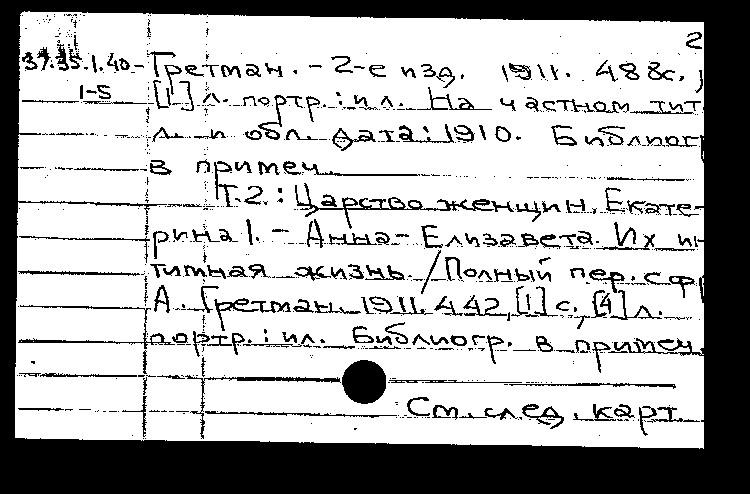 2
37.35.1.40- Гретман. - 2-е изд. 1911. 488с.,
1-5 [1] л. портр. : ил. На частном тит.
л. и обл. дата: 1910. Библиогр
в примеч.
Т.2. : Царство женщин. Екате-
рина I. - Анна - Елизавета. Их ин-
тимная жизнь. / Полный пер. с фр
А. Гретман. 1911. 442, [1] с., [4] л.
портр. : ил. Библиогр. в примеч.
См. след. карт.